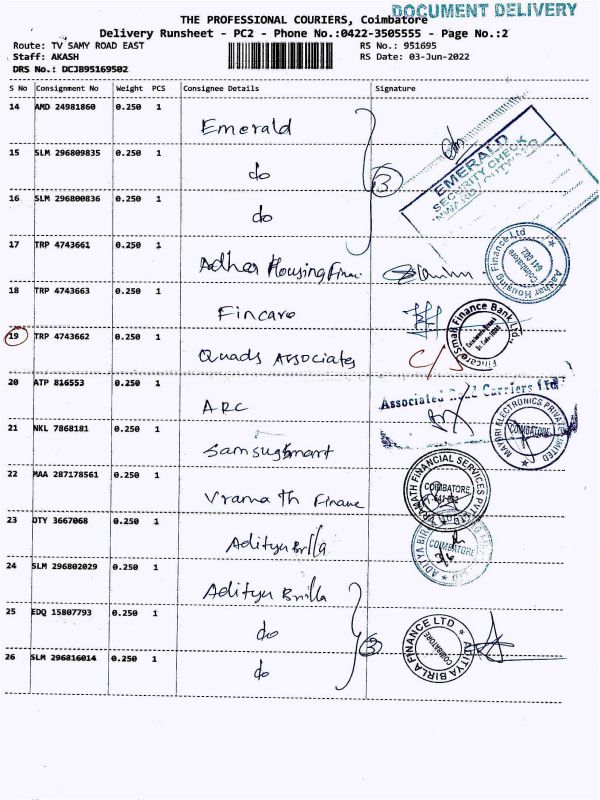 DOCUMENT DELIVERY
THE PROFESSIONAL COURIERS, Coimbatore
Delivery Runsheet - PC2 - Phone No.:0422-3505555 - Page No.:2
Route: TV SAMY ROAD EAST RS No.: 951695
Staff: AKASH RS Date: 03-Jun-2022
DRS No.: DCJB95169502
S No Consignment No Weight PCS Consignee Details Signature
14 AMD 24981860 0.250 1 Emerald
EMERALD
SECURITY CHECK
INWARD / OUTWARD
15 SLM 296809835 0.250 1 do
3
16 SLM 296800836 0.250 1 do
17 TRP 4743661 0.250 1 Adhar Housing Finan
Aadhar Housing Finance Ltd
Coimbatore
641 002.
18 TRP 4743663 0.250 1 Fincare
Fincare Small Finance Bank Ltd
19 TRP 4743662 0.250 1 Quads Associates C/S
20 ATP 816553 0.250 1 ARC
Associated Road Carriers Ltd
21 NKL 7868181 0.250 1 Samsugsmart
MAYURI ELECTRONICS PRIVATE LIMITED
COIMBATORE
22 MAA 287178561 0.250 1 Vramath Finane
VRAMATH FINANCIAL SERVICES PVT LTD
COIMBATORE
641 002
23 DTY 3667068 0.250 1 Aditya Brlla
ADITYA BIRLA
COIMBATORE
24 SLM 296802029 0.250 1 Aditya Brilla
25 EDQ 15807793 0.250 1 do
3
ADITYA BIRLA FINANCE LTD
COIMBATORE
26 SLM 296816014 0.250 1 do